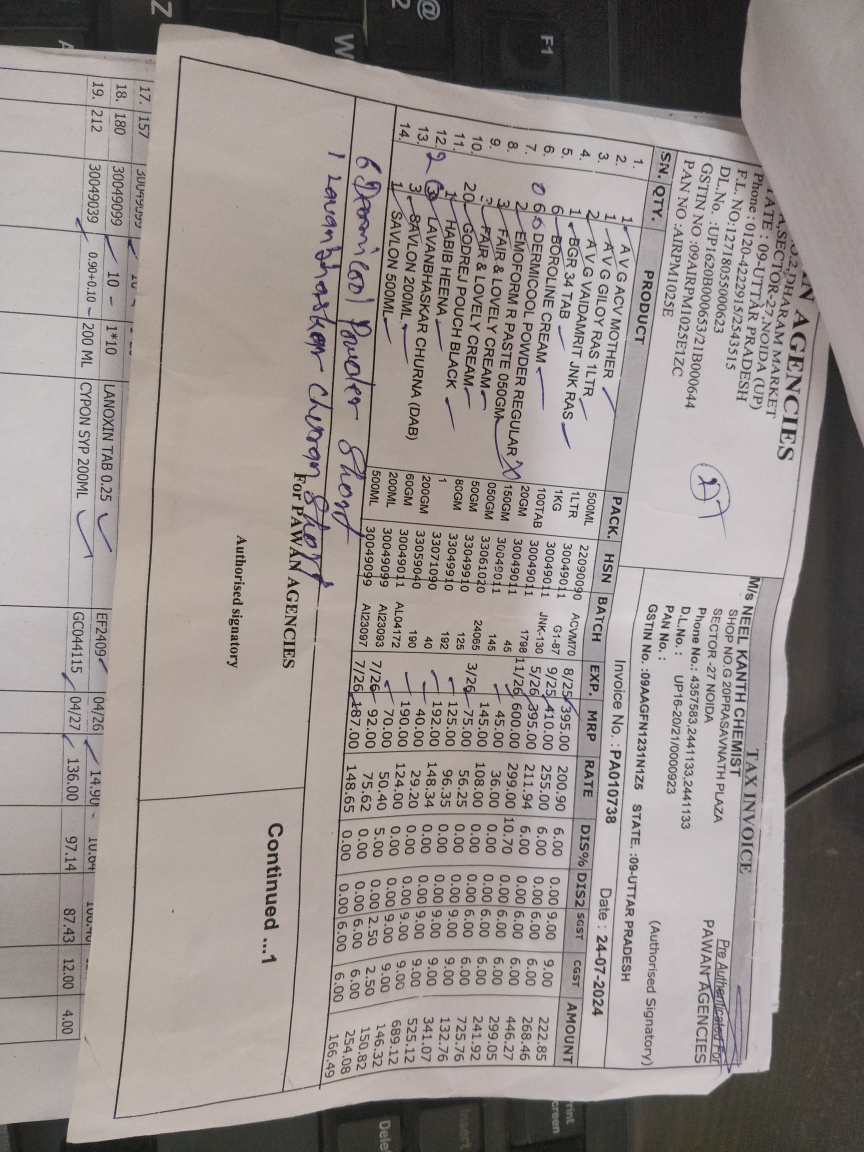 AGENCIES
DHARAM MARKET
SECTOR-27,NOIDA (UP)
STATE : 09-UTTAR PRADESH
Phone : 0120-4222915/2543515
F.L. NO:12718055000623
DL.No. :UP1620B000653/21B000644
GSTIN NO :09AIRPM1025E1ZC
PAN NO :AIRPM1025E
TAX INVOICE
M/s NEEL KANTH CHEMIST
SHOP NO.G 20PRASAVNATH PLAZA
SECTOR -27 NOIDA
Phone No.: 4357583,2441133,2441133
D.L.No. : UP16-20/21/0000923
PAN No. :
GSTIN No. :09AAGFN1231N1Z5 STATE. :09-UTTAR PRADESH
Pre Authenticated For
PAWAN AGENCIES
(Authorised Signatory)
Invoice No. : PA010738 Date : 24-07-2024
SN. QTY. PRODUCT PACK. HSN BATCH EXP. MRP RATE DIS% DIS2 SGST CGST AMOUNT
1. 1 A V G ACV MOTHER 500ML 22090090 ACVM70 8/25 395.00 200.90 6.00 0.00 9.00 9.00 222.85
2. 1 A V G GILOY RAS 1LTR 1LTR 30049011 G1-87 9/25 410.00 255.00 6.00 0.00 6.00 6.00 268.46
3. 2 A V G VAIDAMRIT JNK RAS 1KG 30049011 JNK-130 5/26 395.00 211.94 6.00 0.00 6.00 6.00 446.27
4. 1 BGR 34 TAB 100TAB 30049011 1798 11/26 600.00 299.00 10.70 0.00 6.00 6.00 299.05
5. 6 BOROLINE CREAM 20GM 30049011 45 45.00 36.00 0.00 0.00 6.00 6.00 241.92
6. 6 DERMICOOL POWDER REGULAR 150GM 30049011 145.00 108.00 0.00 0.00 6.00 6.00 725.76
7. 2 EMOFORM R PASTE 050GM 050GM 33061020 24065 3/26 75.00 56.25 0.00 0.00 9.00 9.00 132.76
8. 3 FAIR & LOVELY CREAM 50GM 33049910 125 125.00 96.35 0.00 0.00 9.00 9.00 341.07
9. 3 FAIR & LOVELY CREAM 80GM 33049910 192 192.00 148.34 0.00 0.00 9.00 9.00 525.12
10. 20 GODREJ POUCH BLACK 1 33059040 40 40.00 29.20 0.00 0.00 9.00 9.00 689.12
11. 1 HABIB HEENA 200GM 33071090 190 190.00 124.00 0.00 0.00 9.00 9.00 146.32
12. 3 LAVANBHASKAR CHURNA (DAB) 60GM 30049011 AL04172 70.00 50.40 5.00 0.00 2.50 2.50 150.82
13. 3 SAVLON 200ML 200ML 30049099 AI23093 7/26 92.00 75.62 0.00 0.00 6.00 6.00 254.08
14. 1 SAVLON 500ML 500ML 30049099 AI23097 7/26 187.00 148.65 0.00 0.00 6.00 6.00 166.49
6 Dermicool Powder Short
1 Lavanbhaskar churan Short
For PAWAN AGENCIES
Authorised signatory
Continued ...1
17. 157 30049099
18. 180 30049099 10 1*10 LANOXIN TAB 0.25 EF2409 04/26 14.90
19. 212 30049039 0.90+0.10 200 ML CYPON SYP 200ML GC044115 04/27 136.00 97.14 87.43 12.00 4.00
F1
@
2
W
Z
A
Insert
Delete